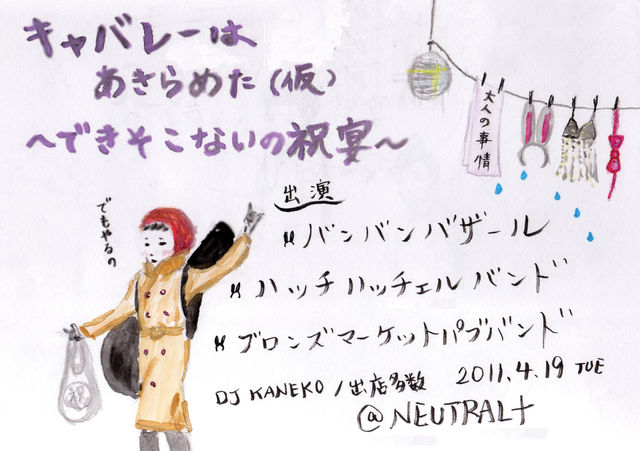 キャバレーは
あきらめた(仮)
〜できそこないの祝宴〜
大人の事情
でもやるの
出演
バンバンバザール
ハッチハッチェルバンド
ブロンズマーケットパブバンド
DJ KANEKO / 出店多数 2011.4.19 TUE
@NEUTRAL+
祝